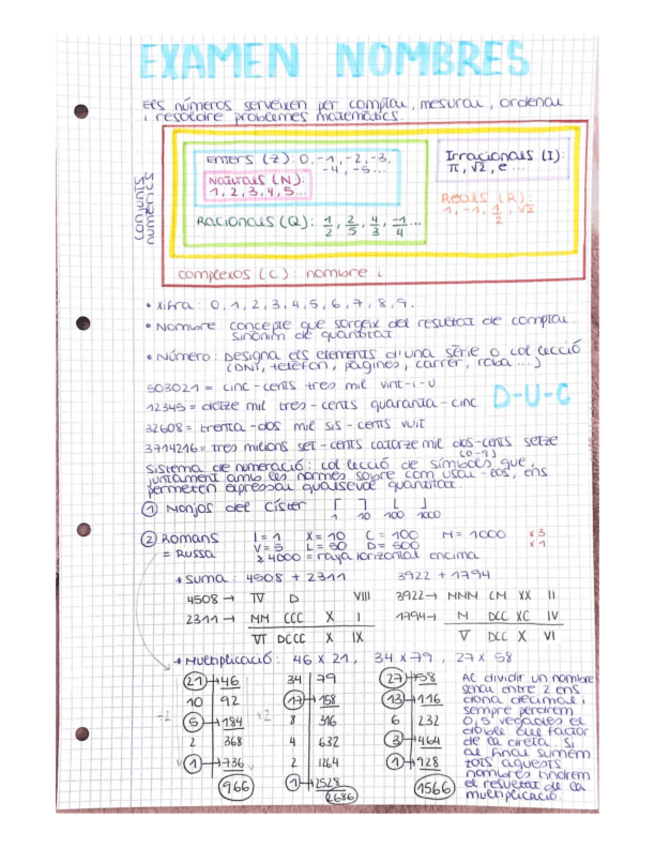 EXAMEN NOMBRES
Els números serveixen per comptar, mesurar, ordenar
i resoldre problemes matemàtics.
Enters (Z): 0, -1, -2, -3,
-4, -5...
Naturals (N):
1, 2, 3, 4, 5...
Irracionals (I):
π, √2, e ...
Reals (R):
1, -1, 1/2, √2
Racionals (Q): 1/2, 2/5, 4/3, -1/4 ...
complexos (C): nombre i
• Xifra: 0, 1, 2, 3, 4, 5, 6, 7, 8, 9.
• Nombre: concepte que sorgeix del resultat de comptar.
sinònim de quantitat.
• Número: Designa els elements d'una sèrie o col·lecció
(DNI, telèfon, pàgines, carrer, roba ...)
503021 = cinc-cents tres mil vint-i-u
12345 = dotze mil tres-cents quaranta-cinc
D-U-C
32608 = trenta-dos mil sis-cents vuit
3714216 = tres milions set-cents catorze mil dos-cents setze
(0-9)
Sistema de numeració: col·lecció de símbols que,
juntament amb les normes sobre com usar-los, ens
permeten expressar qualsevol quantitat.
① Monjos del Císter
1 10 100 1000
② Romans I = 1 X = 10 C = 100 M = 1000 x3
= Russa V = 5 L = 50 D = 500 x1
≥ 4000 = raya horizontal encima
* Suma: 4508 + 2311 3922 + 1794
4508 → IV D VIII 3922 → MMM CM XX II
2311 → MM CCC X I 1794 → M DCC XC IV
VI DCCC X IX V DCC X VI
* Multiplicació: 46 x 21, 34 x 79, 27 x 58
21 → 46 34 79 27 → 58
10 92 17 → 158 13 → 116
5 → 184 8 316 6 232
2 368 4 632 3 → 464
1 → 736 2 1264 1 → 928
966 1 → 2528 1566
2686
Al dividir un nombre
senar entre 2 ens
dona decimal i
sempre perdrem
0,5 vegades el
doble del factor
de la dreta. Si
al final sumem
tots aquests
nombres tindrem
el resultat de la
multiplicació.